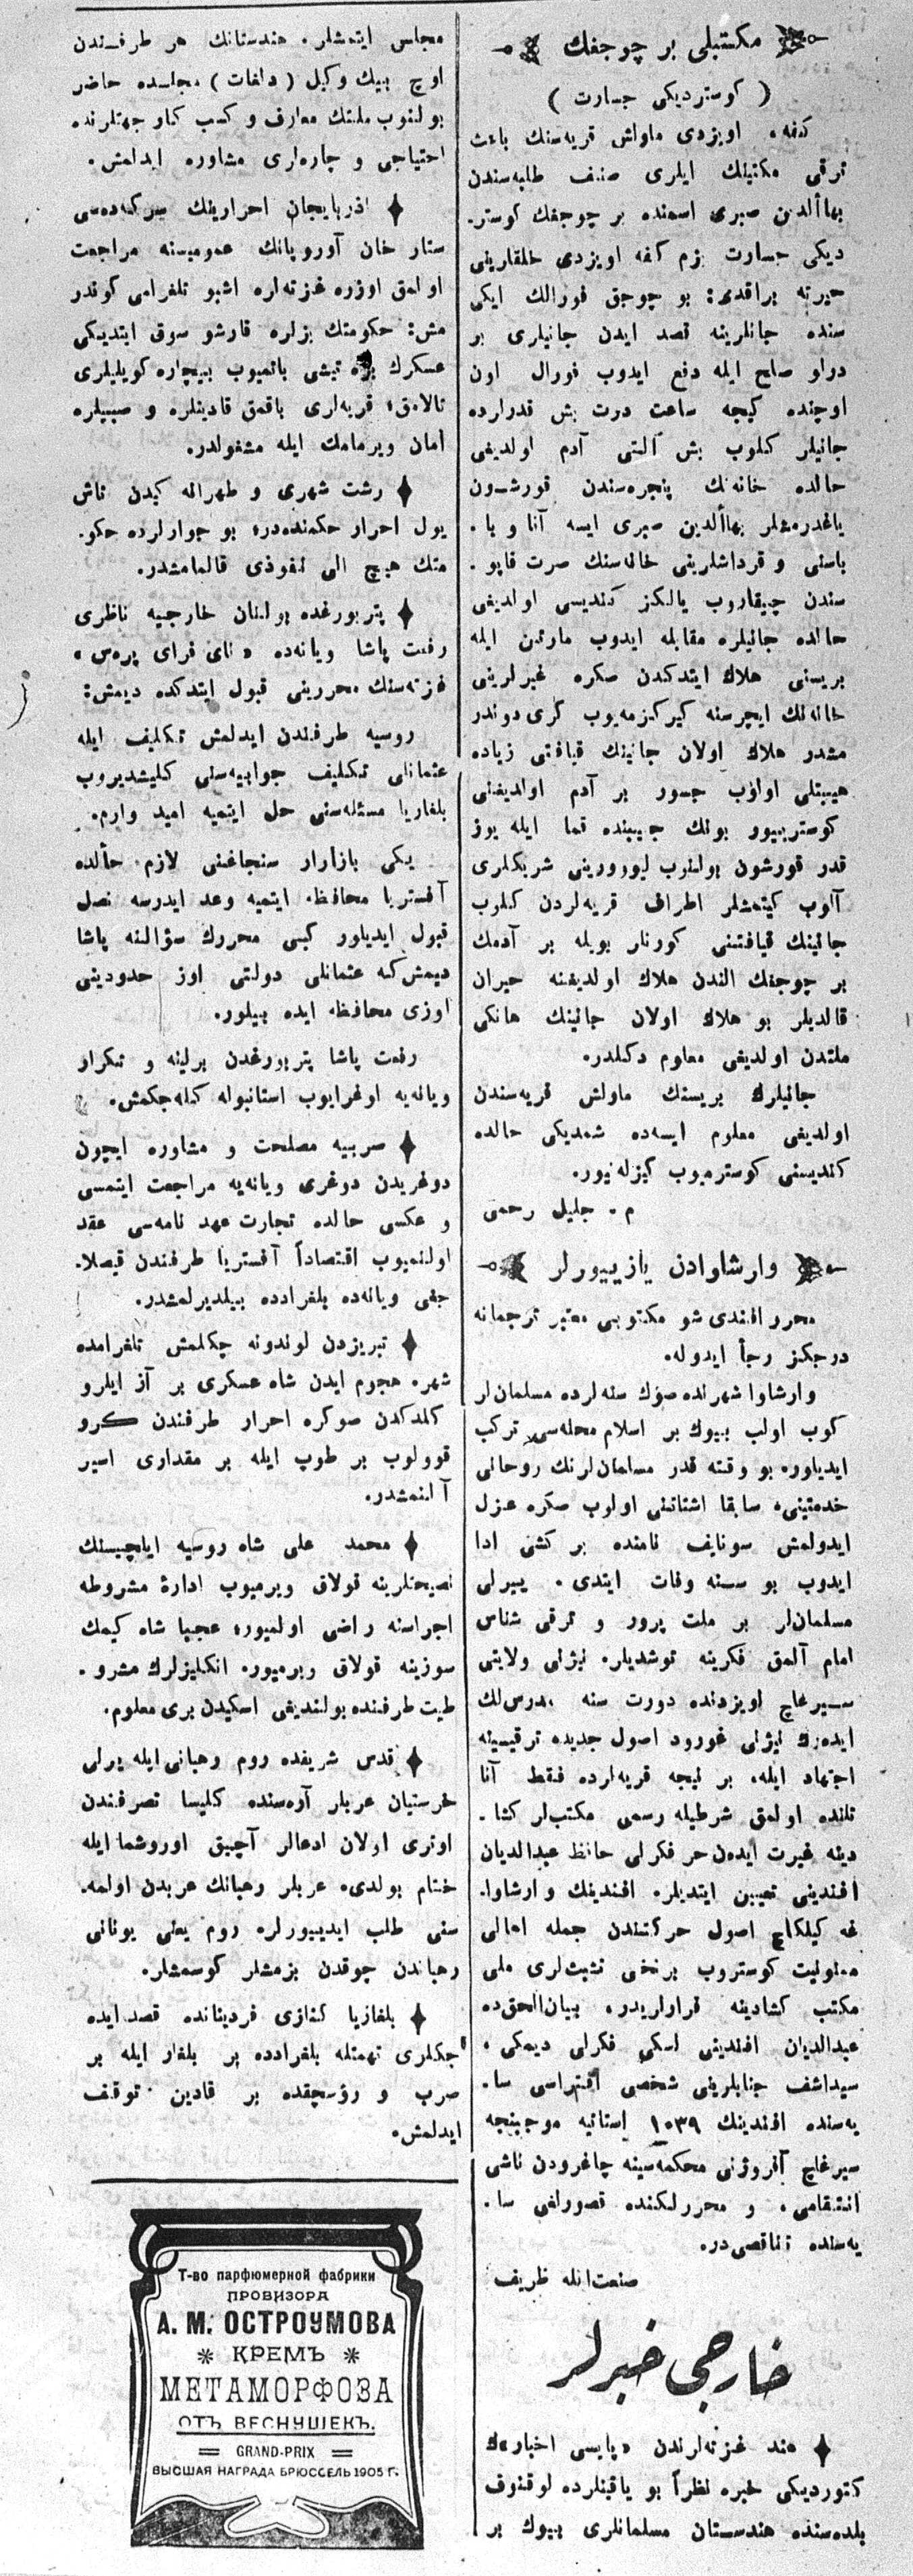 مكتبلی بر چوجغك
( كوستردیكی جسارت )
كفه، اویزدی ماواش قریه‌سنك باعث
ترقی مكتبنك ایلری صنف طلبه‌سندن
بهاألدین صبری اسمنده بر چوجغك كوستر-
دیكی جسارت بزم كفه اویزدی خلقارینی
حیرته براقدی: بو چوجق فورالك ایكی
سنده جانلرینه قصد ایدن جانیلری بر
دراو صلح ایله دفع ایدوب فورال اون
اوچنده كیجه ساعت درت بش قدرارده
جانیلر كلوب بش آلتی آدم اولدیغی
حالده خانه‌نك پنجره‌سندن قورشون
یاغدرمشلر بهاألدین صبری ایسه آنا و با-
باسنی و قرداشلرینی خانه‌سنك صرت قاپو-
سندن چیقاروب یالكز كندیسی اولدیغی
حالده جانیلره مقابله ایدوب مارتین ایله
بریسنی هلاك ایتدكدن صكره غیرلرینی
خانه‌نك ایچرسنه كیركیزمه‌یوب كری دوندر
مشدر هلاك اولان جانینك قیافتی زیاده
هیبتلی اولوب جسور بر آدم اولدیغنی
كوسترییور بونك جیبنده قما ایله یوز
قدر قورشون بولنوب لیوورینی شریكلری
آلوب كیتمشلر اطراف قریه‌لردن كلوب
جانینك قیافتنی كورنلر بویله بر آدمك
بر چوجغك الندن هلاك اولدیغنه حیران
قالدیلر بو هلاك اولان جانینك هانكی
ملتدن اولدیغی معلوم دكلدر.
جانیلرك بریسنك ماولش قریه‌سندن
اولدیغی معلوم ایسه‌ده شمدیكی حالده
كندیسنی كوسترمیوب كیزله‌نیور.
م. جلیل رحمی
وارشاوادن یازییورلر
محرر افندی شو مكتوبی معتبر ترجمانه
درجكز رجأ ایدوله.
وارشاوا شهرنده صوك سنه‌لرده مسلمان‌لر
كوب اولب بیوك بر اسلام محله‌سی تركب
ایدیاور، بو وقته قدر مسلمان‌لرنك روحانی
خدمتینی، سابقا اشتاتنی اولوب صكره عزل
ایدولمش سونایف نامنده بر كشی ادا
ایدوب بو سنه وفات ایتدی. ییرلی
مسلمان‌لر بر ملت پرور و ترقی شناس
امام آلمق فكرینه توشدیلر. نیژنی ولایتی
سیرغاچ اویزدنده دورت سنه مدرس‌لك
ایده‌رك نیژنی غورود اصول جدیده ترقیسینه
اجتهاد ایله، بر نیجه قریه‌لرده فقط آنا
تلنده اولمق شرطیله رسمی مكتب‌لر كشا-
دینه غیرت ایده‌ن حر فكرلی حافظ عبدالدیان
افندینی تعیین ایتدیلر. افندینك وارشاوا-
غه كیلكاچ اصول حركتندن جمله اهالی
ممنولیت كوستروب برنخی تثبت‌لری ملی
مكتب كشادینه قراولریدر. بیان‌الحق‌ده
عبدالدیان افندینی اسكی فكرلی دیمكی،
سیداشف جنابلرینی شخصی افتراسی سا-
یه‌سنده افندینك ١٠٣٩ إستاتیه موجبنجه
سیرغاچ آقروژنی محكمه‌سینه چاغرودن ناشی
انتقامی، و محررلكنده قصورلغی سا-
یه‌سنده تناقصی‌در.
صنعت‌الله ظریف
خارجی خبرلر
هند غزته‌لرندن «پایسی اخبار»ك
كتوردیكی خبره نظرأ بو یاقینلرده لوقنوف
بلده‌سنده هندستان مسلمانلری بیوك بر
مجلسی ایتمشلر. هندستانك هر طرفندن
اوچ بیك وكیل ( دلغات ) مجلسده حاضر
بولنوب ملتك معارف و كسب كار جهتلرنده
احتیاجی و چاره‌لری مشاوره ایدلمش.
اذربایجان احرارینك سركرده‌سی
ستار خان آوروپانك عمومیسنه مراجعت
اولمق اوزره غزته‌لره اشبو تلغرامی كوندر
مش: حكومتك بزلره قارشو سوق ایتدیكی
عسكرك بزه تیشی باتمیوب بیچاره كویلیلری
تالامق، قریه‌لری یاقمق قادینلره و صبیلره
أمان ویرمامك ایله مشغولدر.
رشت شهری و طهرانه كیدن تاش
یول احرار حكمنده‌در، بو جوارلرده حكو-
متك هیچ الی نفوذی قالمامشدر.
پتربورغده بولنان خارجیه ناظری
رفعت پاشا ویانه‌ده «نای فرای پره‌س»
غزته‌سنك محررینی قبول ایتدكده دیمش:
روسیه طرفندن ایدلمش تكلیف ایله
عثمانلی تكلیف جوابیه‌سنی كلیشدیروب
بلغاریا مسئله‌سنی حل ایتمیه امید وارم.
یكی بازار سنجاغنی لازم حألده
آفستریا محافظه ایتمیه وعد ایدرسه نصل
قبول ایدیلور كبی محررك سؤالنه پاشا
دیمش‌كه عثمانلی دولتی اوز حدودینی
اوزی محافظه ایده بیلور.
رفعت پاشا پتربورغدن برلینه و تكرار
ویانه‌یه اوغرایوب استانبوله كله‌جكمش.
صربیه مصلحت و مشاوره ایچون
دوغریدن دوغری ویانه‌یه مراجعت ایتمسی
و عكسی حالده تجارت عهد نامه‌سی عقد
اولنمیوب اقتصاداً آفستریا طرفندن قیصلا-
جغی ویانه‌ده بلغرادده بیلدیرلمشدر.
تبریزدن لوندونه چكلمش تلغرامده
شهره هجوم ایدن شاه عسكری بر آز ایلرو
كلدكدن صوكره احرار طرفندن كرو
قوولوب بر طوپ ایله بر مقداری اسیر
آلنمشدر.
محمد علی شاه روسیه ایلچیسنك
نصیحتلرینه قولاق ویرمیوب ادارهٔ مشروطه
اجراسنه راضی اولمیور، عجبا شاه كیمك
سوزینه قولاق ویرمیور. انكلیزلرك مشرو-
طیت طرفنده بولندیغی اسكیدن بری معلوم.
قدس شریفده روم رهبانی ایله یرلی
خرستیان عربلر آره‌سنده كلیسا تصرفندن
اوتری اولان ادعالر آچیق اوروشما ایله
ختام بولدی. عربلر رهبانك عربدن اولمه-
سنی طلب ایدییورلر. روم یعنی یونانی
رهباندن چوقدن بزمشلر كوسمشلر.
بلغاریا كنازی فردینانده قصد ایده
جكلری تهمتله بلغرادده بر بلغار ایله بر
صرب و رؤسچقده بر قادین توقف
ایدلمش.
Т-во парфюмерной фабрики
ПРОВИЗОРА
А. М. ОСТРОУМОВА
КРЕМЪ
МЕТАМОРФОЗА
ОТЪ ВЕСНУШЕКЪ.
GRAND-PRIX
ВЫСШАЯ НАГРАДА БРЮССЕЛЬ 1905 Г.